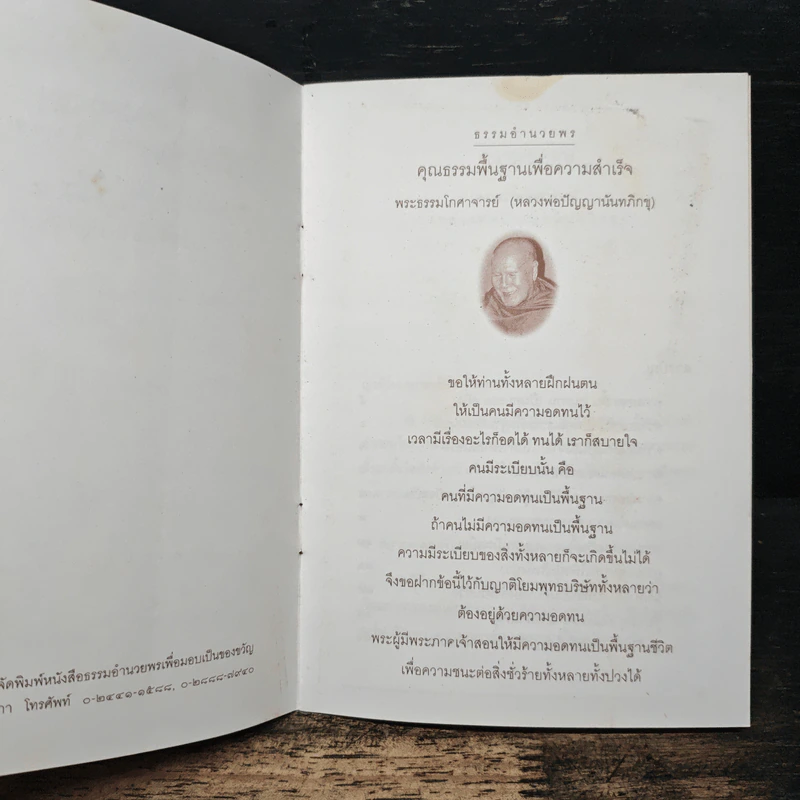 จัดพิมพ์หนังสือธรรมอำนวยพรเพื่อมอบเป็นของขวัญ
โทรศัพท์ ๐-๒๔๔๑-๑๕๘๘, ๐-๒๘๘๘-๗๙๔๐
ธรรมอำนวยพร
คุณธรรมพื้นฐานเพื่อความสำเร็จ
พระธรรมโกศาจารย์ (หลวงพ่อปัญญานันทภิกขุ)
ขอให้ท่านทั้งหลายฝึกฝนตน
ให้เป็นคนมีความอดทนไว้
เวลามีเรื่องอะไรก็อดได้ ทนได้ เราก็สบายใจ
คนมีระเบียบนั้น คือ
คนที่มีความอดทนเป็นพื้นฐาน
ถ้าคนไม่มีความอดทนเป็นพื้นฐาน
ความมีระเบียบของสิ่งทั้งหลายก็จะเกิดขึ้นไม่ได้
จึงขอฝากข้อนี้ไว้กับญาติโยมพุทธบริษัททั้งหลายว่า
ต้องอยู่ด้วยความอดทน
พระผู้มีพระภาคเจ้าสอนให้มีความอดทนเป็นพื้นฐานชีวิต
เพื่อความชนะต่อสิ่งชั่วร้ายทั้งหลายทั้งปวงได้